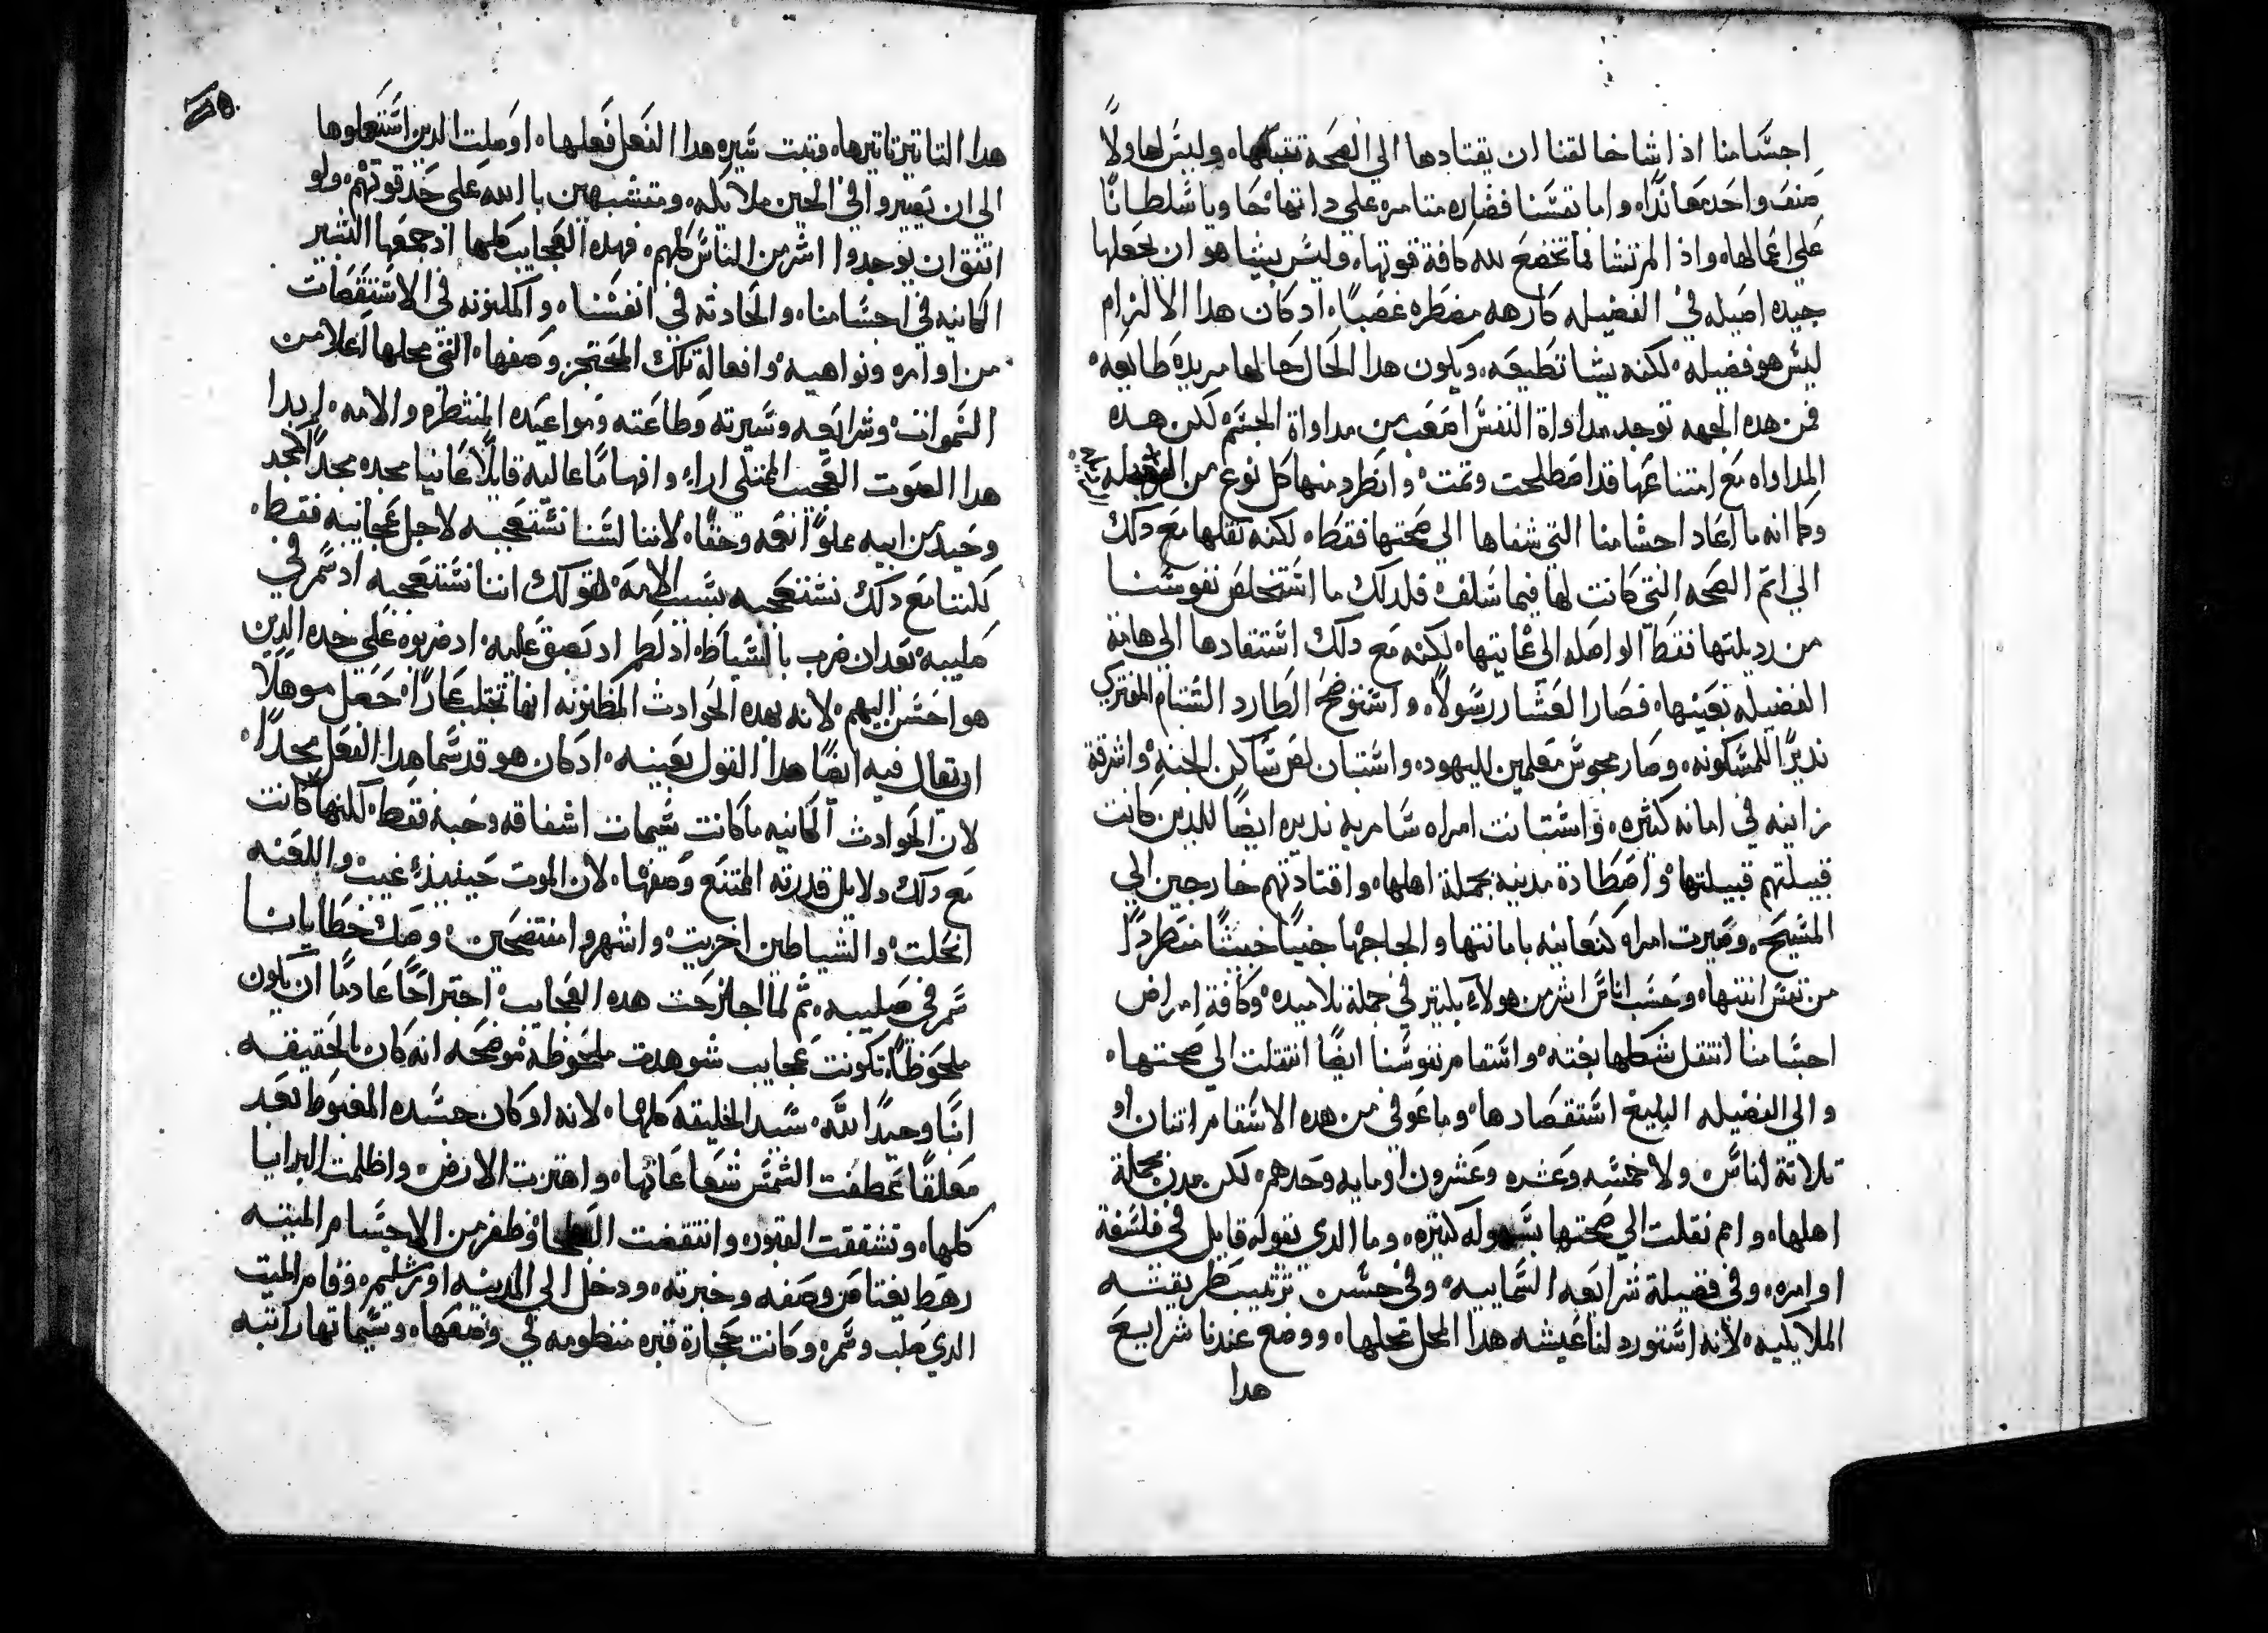 اجسامنا اذا شا خالقنا ان يقتادها الي الصحة تقبلها، وليس لها ولا
صنف واحد معاندا، واما نفسنا فضاره متامره علي داتها حاويا سلطانا
علي اعمالها، واذ المرتشا فما تخضع لله كافة قوتها، وليس يشا هو ان يجعلها
جيده اصيله في الفضيله كارهه مضطره غصبا، اد كان هدا الالزام
ليس هو فضيله، لكنه يشا تطيعه، ويكون هدا الحال حالها مريدة طايعه،
فمن هده الجهه توجد مداواة النفس اصعب من مداواة الجسم لكن هده
المداواه مع امتناعها قد اصطلحت وتمت، وانطرد منها كل نوع من
وكما انه ما اعاد اجسامنا التي شفاها الي صحتها فقط، لكنه نقلها مع دلك
الي اتم الصحه التي كانت لها فيما سلف فلدلك ما استخلص نفوسنا
من رديلتها فقط الواصله الي غايتها، لكنه مع دلك استقادها الي هامة
الفضيله بعينها، فصار العشار رسولا، واستوضح الطارد الشتام المفتري
نديرا للمسكونه، وصار مجوس معلمين لليهود، واستبان لص ساكن الجنة، واشرقة
زانيه في امانه كثيره، واستبانت امراه سامريه نديره ايضا للدين كانت
قبيلتهم قبيلتها، واصطادة مدينه بجملة اهلها، واقتادتهم خارجين الي
المسيح، وصيرت امراه كنعانيه بامانتها والجاجها جنيا خبيثا منطردا
من نفس ابنتها، وحسب اناس اشر من هولاء بكتير في جملة تلاميده، وكافة امراض
اجسامنا انتقل شكلها بغته، واسقام نفوسنا ايضا انتقلت الي صحتها،
والي الفضيله البليغ استقصادها، وما عوفي من هده الاسقام اتنان او
تلاتة اناس، ولا خمسه وعشره وعشرون او مايه وحدهم، لكن مدن بجملة
اهلها، وامم نقلت الي صحتها بسهوله كثيره، وما الدي نقوله قايل في فلسفة
اوامره، وفي فضيلة شرايعه السماييه، وفي حسن ترتيب طريقته
الملايكيه، لانه استورد لنا عيشه هدا المحل محلها، ووضع عندنا شرايع
هدا
هدا التاتير تاتيرها، وتبت سيره هدا الفعل فعلها، اوصلت الدين استعملوها
الي ان يصيروا في الحين ملايكه، ومتشبهين باالله علي حد قوتهم، ولو
اتفق ان يوجدوا اشر من الناس كلهم، فهده العجايب كلها اد جمعها البشير
الكاينه في اجسامنا، والحادته في انفسنا، والمكنونه في الاستقصات
من اوامره ونواهيه، وافعاله تلك المحتجز وصفها، التي محلها اعلا من
السموات، وشرايعه وسيرته وطاعته ومواعيده المنتظره والامه، ابدا
هدا الصوت العجيب الممتلي اراء وافهاما عاليه قايلا عاينا مجده مجدا كمجد
وحيد من ابيه مملوا نعمه وحقا، لاننا لسنا نستعجبه لاجل عجايبه فقط،
لكننا مع دلك نستعجبه بسبب الامه، كقولك اننا نستعجبه اد سمر في
صليبه، بعد ان ضرب باالسياط، اد لطم اد بصق عليه، اد ضربوه علي خده الدين
هو احسن اليهم، لانه بهده الحوادت المظنونه انها تجتلب عارا، جعل موهلا
ان يقال فيه ايضا هدا القول بعينه، اد كان هو قد سما هدا الفعل مجدا،
لان الحوادت الكاينه ما كانت سيمات اشفاقه وحبه فقط، لكنها كانت
مع دلك دلايل قدرته الممتنع وصفها، لان الموت حينيذ غيب، واللعنه
انحلت، والشياطين اخزيت، واشهروا مفتضحين، وصك خطايانا
سمر في صليبه، ثم لما اجترحت هده العجايب، اجتراحا عادما ان يكون
ملحوظا، تكونت عجايب شوهدت ملحوظة، موضحه انه كان بالحقيقه
ابنا وحيدا لله، سيد الخليقه كلها، لانه اد كان جسده المغبوط بعد
معلقا عطفت الشمس شعاعاتها، واهتزت الارض، واظلمت البرايا
كلها، وتشققت القبور، وانتقضت وطفر من الاجسام الميته
رهط يفتاقن وصفه وخبرته، ودخل الي المدينه اورشليم، وقام الميت
الدي صلب وسمر، وكانت حجارة قبره منظومه في وصفها، وسيماتها راتبه